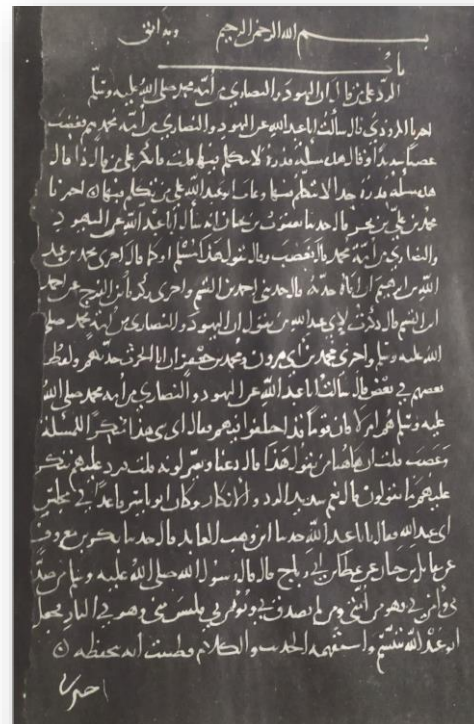 بسم الله الرحمن الرحيم وبه اثق
باب
الرد على من قال ان اليهود والنصارى من أمة محمد صلى الله عليه وسلم
اخبرنا المروذي قال سألت ابا عبد الله عن اليهود والنصارى من أمة محمد هم فغضب
غضبا شديدا وقال هذه مسلة قذرة لا يتكلم فيها قلت فانكر على من قال ذا قال
هذه مسلة قذرة جدا لا يتكلم فيها وعاب ابو عبد الله على من تكلم فيها اخبرنا
محمد بن علي بن بحر قال حدثنا يعقوب بن بختان انه سأل ابا عبد الله عن اليهود
والنصارى من أمة محمد قال فغضب وقال يقول هذا مسلم او كما قال اخبرني محمد بن عبد
الله بن ابرهيم ان اباه حدثه قال حدثني احمد بن القسم واخبرني زكريا بن الفرج عن احمد
ابن القسم قال ذكرت لابي عبد الله من يقول ان اليهود والنصارى من أمة محمد صلى
الله عليه وسلم واخبرني محمد بن ابي هرون ومحمد بن جعفر ان ابا الحرث حدثهم ولفظ
بعضهم في بعض قال سألنا ابا عبد الله عن اليهود والنصارى من أمة محمد صلى الله
عليه وسلم هم ام لا فان قوما قد اختلفوا فيهم فقال اي شي هذا منكرا للمسلة
وغضب قلت ان هاهنا من يقول هذا قال دعنا وتغير لونه قلت فيرد عليهم وينكر
عليهم ما يقولون قال نعم شديد الرد والانكار وكان ابو ياسر قاعدا في مجلس
ابي عبد الله فقال يا ابا عبد الله حدثنا ابن وهب العابد قال حدثنا بكر بن معروف
عن مقاتل بن حيان عن عطا بن ابي رباح قال قال رسول الله صلى الله عليه وسلم من صدق
بي وآمن بي فهو من أمتي ومن لم يصدق بي ويؤمن بي فليس مني وهو في النار فجعل
ابو عبد الله يتبسم واستفهمه الحديث والكلام فظننت أنه يحفظه
اخبرنا